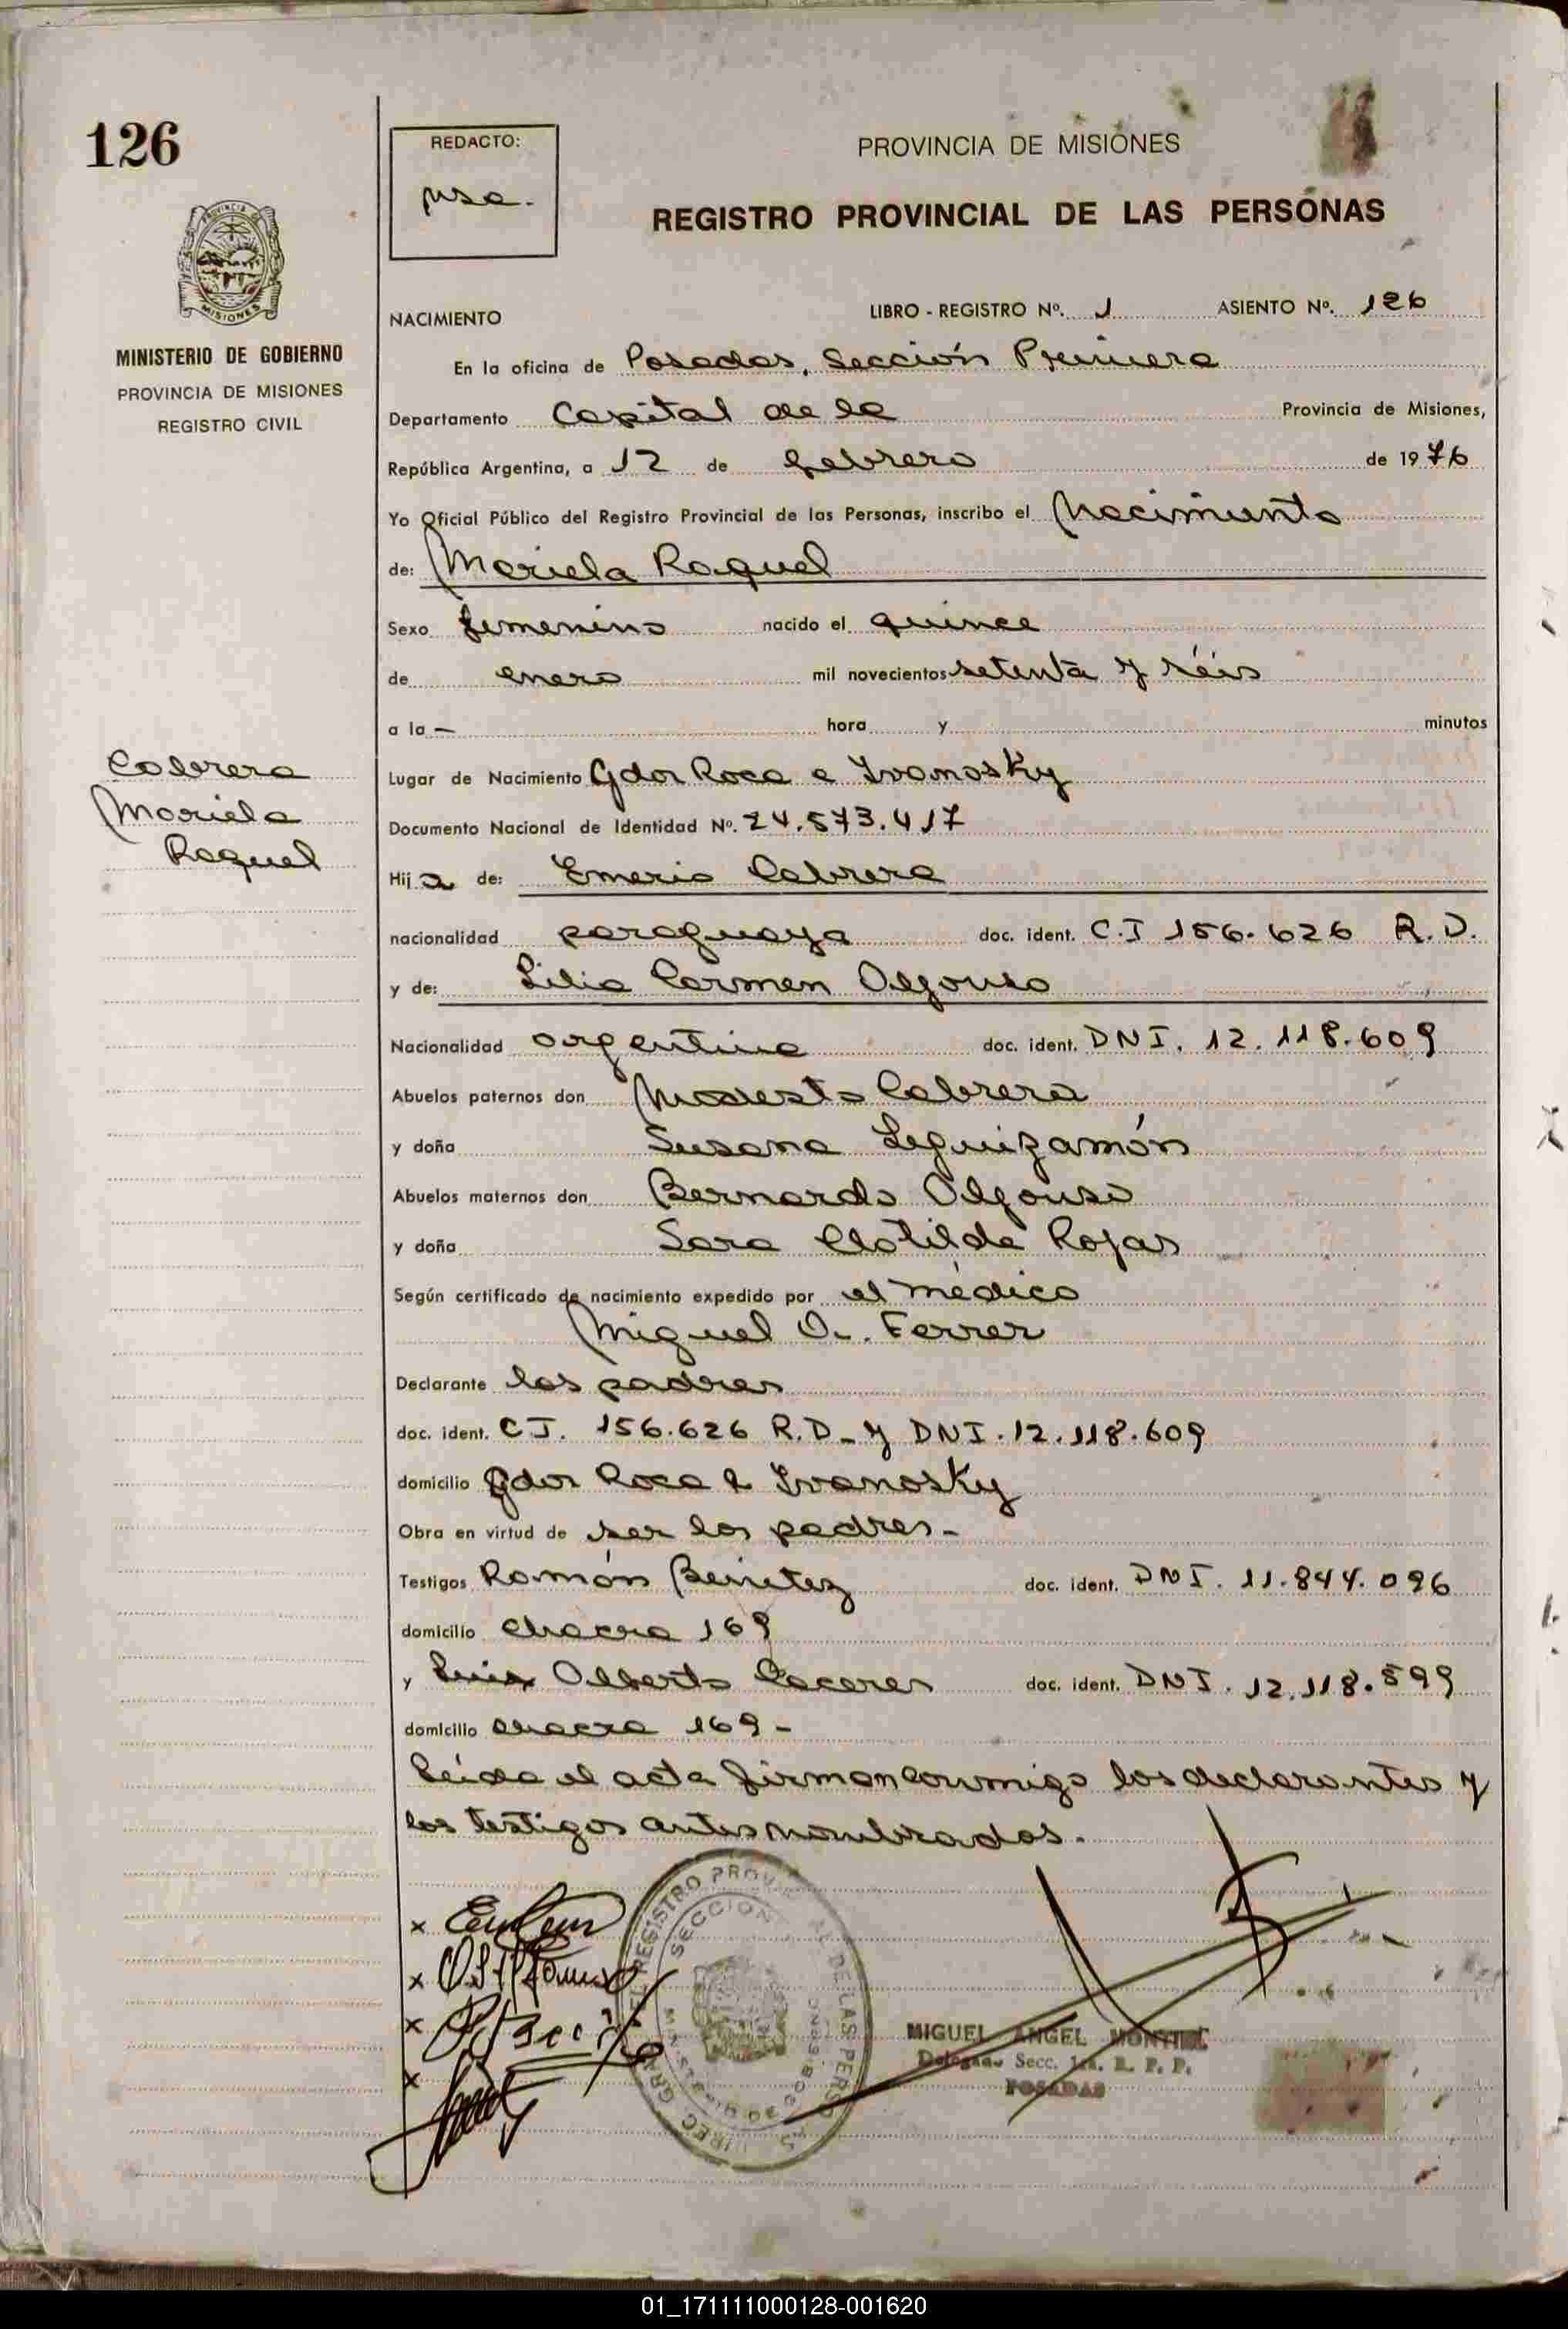 126
REDACTO:
PROVINCIA DE MISIONES
REGISTRO PROVINCIAL DE LAS PERSONAS
MISIONES
MINISTERIO DE GOBIERNO
PROVINCIA DE MISIONES
REGISTRO CIVIL
NACIMIENTO LIBRO - REGISTRO Nº. 1 ASIENTO Nº. 126
En la oficina de Posadas, Sección Primera
Departamento Capital de la Provincia de Misiones,
República Argentina, a 12 de febrero de 1976
Yo Oficial Público del Registro Provincial de las Personas, inscribo el Nacimiento
de: Mariela Raquel
Sexo femenino nacido el quince
de enero mil novecientos setenta y séis
a la — hora y minutos
Cabrera
Mariela
Raquel
Lugar de Nacimiento Gdor Roca e Ivanosky
Documento Nacional de Identidad Nº. 24.573.417
Hija de: Emerio Cabrera
nacionalidad paraguaya doc. ident. C.I 156.626 R.D.
y de: Lilia Carmen Alfonso
Nacionalidad argentina doc. ident. DNI. 12.118.609
Abuelos paternos don Modesto Cabrera
y doña Susana Leguizamón
Abuelos maternos don Bernardo Alfonso
y doña Sara Clotilde Rojas
Según certificado de nacimiento expedido por el médico
Miguel O. Ferrer
Declarante los padres
doc. ident. C I. 156.626 R.D- y DNI. 12.118.609
domicilio Gdor Roca e Ivanosky
Obra en virtud de ser los padres-
Testigos Román Benitez doc. ident. DNI. 11.844.096
domicilio chacra 169
y Luis Alberto Caceres doc. ident. DNI. 12.118.599
domicilio chacra 169-
Leída el acta firman conmigo los declarantes y
los testigos antes nombrados.
MIGUEL ANGEL MONTIEL
Delegado Secc. 1ra. R. P. P.
POSADAS
01_171111000128-001620